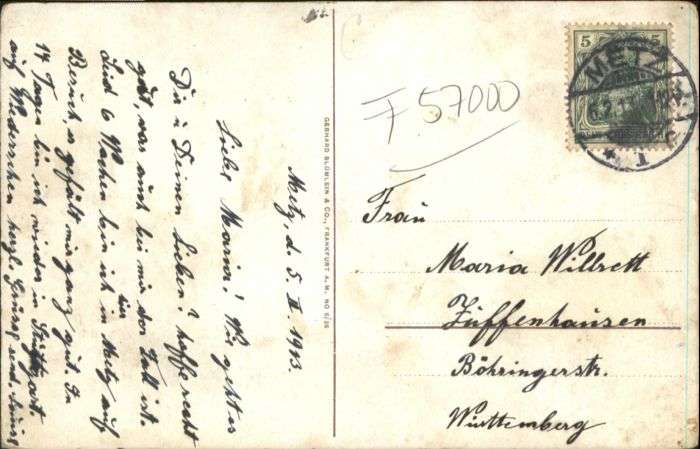 Metz, d. 5. II. 1913.
Liebe Maria! Wie geht es
Du u Deinen Lieben? hoffe recht
gut, was auch bei mir der Fall ist.
Seid 6 Wochen bin ich hier in Metz auf
Besuch, es gefällt mir ganz gut. In
14 Tagen bin ich wieder in Stuttgart.
auf Wiedersehen herzl. Grüsse
GEBHARD BLÜMLEIN & CO., FRANKFURT A. M. NO
F 57000
5 5
METZ
1
Frau
Maria Willrett
Zuffenhausen
Böhringerstr.
Württemberg